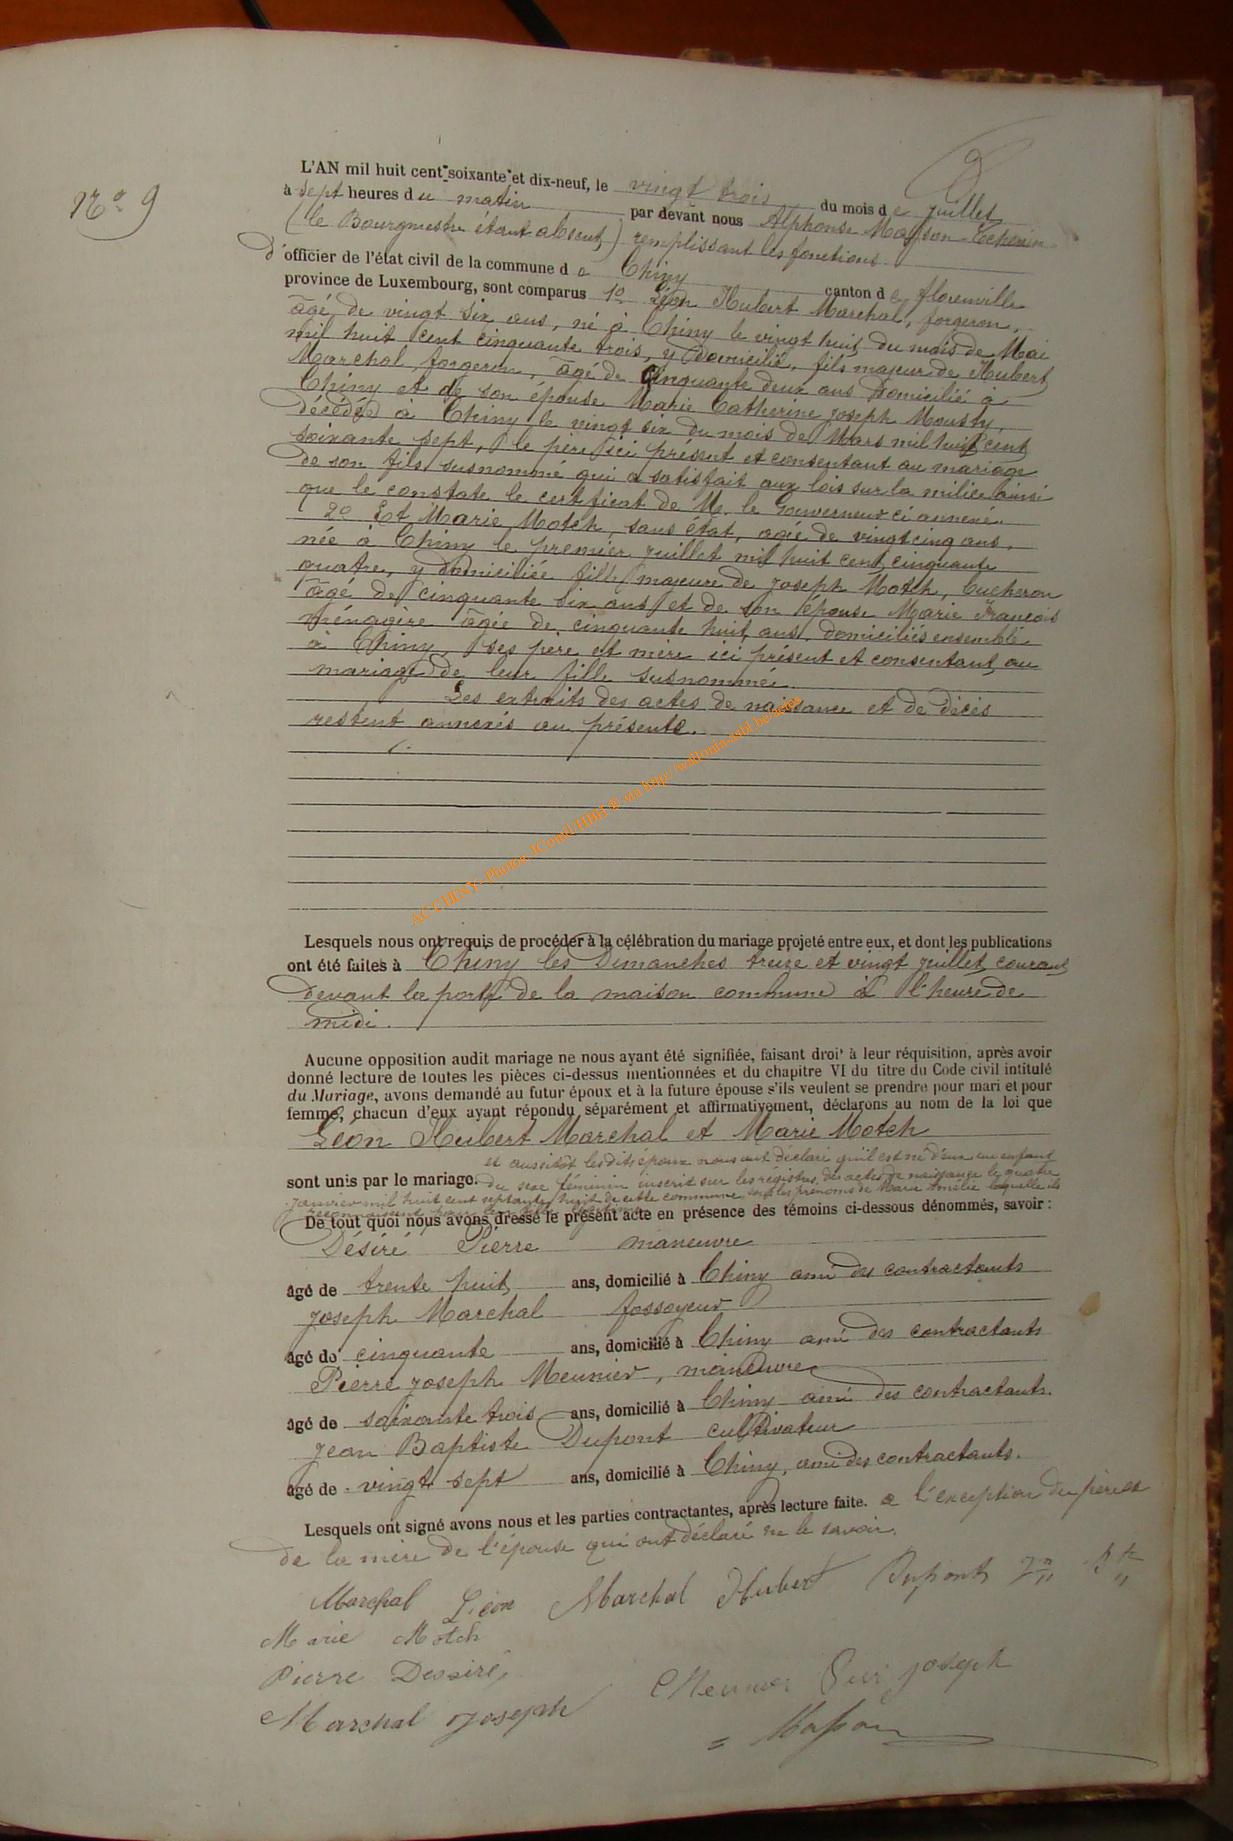 No 9
L'AN mil huit cent soixante et dix-neuf, le vingt trois du mois de juillet
à sept heures du matin par devant nous Alphonse Masson
(le Bourgmestre étant absent) remplissant les fonctions
d'officier de l'état civil de la commune de Chiny canton de florenville
province de Luxembourg, sont comparus 1o Léon Hubert Marchal, forgeron,
âgé de vingt six ans, né à Chiny le vingt huit du mois de Mai
mil huit cent cinquante trois, y domicilié, fils majeur de Hubert
Marchal, forgeron, âgé de Cinquante deux ans domicilié a
Chiny et de son épouse Marie Catherine joseph Mousty,
décédée à Chiny le vingt six du mois de Mars mil huit cent
soixante sept, le père ici présent et consentant au mariage
de son fils susnommé qui a satisfait aux lois sur la milice ainsi
que le constate le certificat de M. le Gouverneur ci annexé.
2o Et Marie Motch, sans état, agée de vingt cinq ans,
née à Chiny le premier juillet mil huit cent cinquante
quatre, y domiciliée fille majeure de joseph Motch, bucheron
âgé de cinquante six ans et de son épouse Marie François
ménagère âgée de cinquante huit ans, domiciliés ensemble
à Chiny, ses père et mère ici présent et consentant au
mariage de leur fille susnommée
Les extraits des actes de naissance et de décès
restent annexés au présente.
AC CHINY - Photos JComil/HBH & via http://wallonia-asbl.be/actes
Lesquels nous ont requis de procéder à la célébration du mariage projeté entre eux, et dont les publications
ont été faites à Chiny les Dimanches treize et vingt juillet courant
devant la porte de la maison commune à l'heure de
midi.
Aucune opposition audit mariage ne nous ayant été signifiée, faisant droit à leur réquisition, après avoir
donné lecture de toutes les pièces ci-dessus mentionnées et du chapitre VI du titre du Code civil intitulé
du Mariage, avons demandé au futur époux et à la future épouse s'ils veulent se prendre pour mari et pour
femme, chacun d'eux ayant répondu séparément et affirmativement, déclarons au nom de la loi que
Léon Hubert Marchal et Marie Motch
et aussitôt lesdits époux nous ont déclaré qu'il est né d'eux un enfant
sont unis par le mariage. du sexe féminin inscrit sur les registres des actes de naissance le quatre
janvier mil huit cent septante huit de cette commune sous les prénoms de Marie Amélie laquelle ils
reconnaissent pour leur fille légitime
De tout quoi nous avons dressé le présent acte en présence des témoins ci-dessous dénommés, savoir :
Désiré Pierre maneuvre
âgé de trente huit ans, domicilié à Chiny ami des contractants
joseph Marchal fossoyeur
âgé de cinquante ans, domicilié à Chiny ami des contractants
Pierre joseph Meunier, maneuvre
âgé de soixante trois ans, domicilié à Chiny ami des contractants.
jean Baptiste Dupont cultivateur
âgé de vingt sept ans, domicilié à Chiny, ami des contractants.
Lesquels ont signé avons nous et les parties contractantes, après lecture faite. a l'exception du père et
de la mère de l'épouse qui ont déclaré ne le savoir.
Marchal Léon Marchal Hubert Dupont Jn Bte
Marie Motch
Pierre Dessiré
Meunier Pier joseph
Marchal joseph
Masson